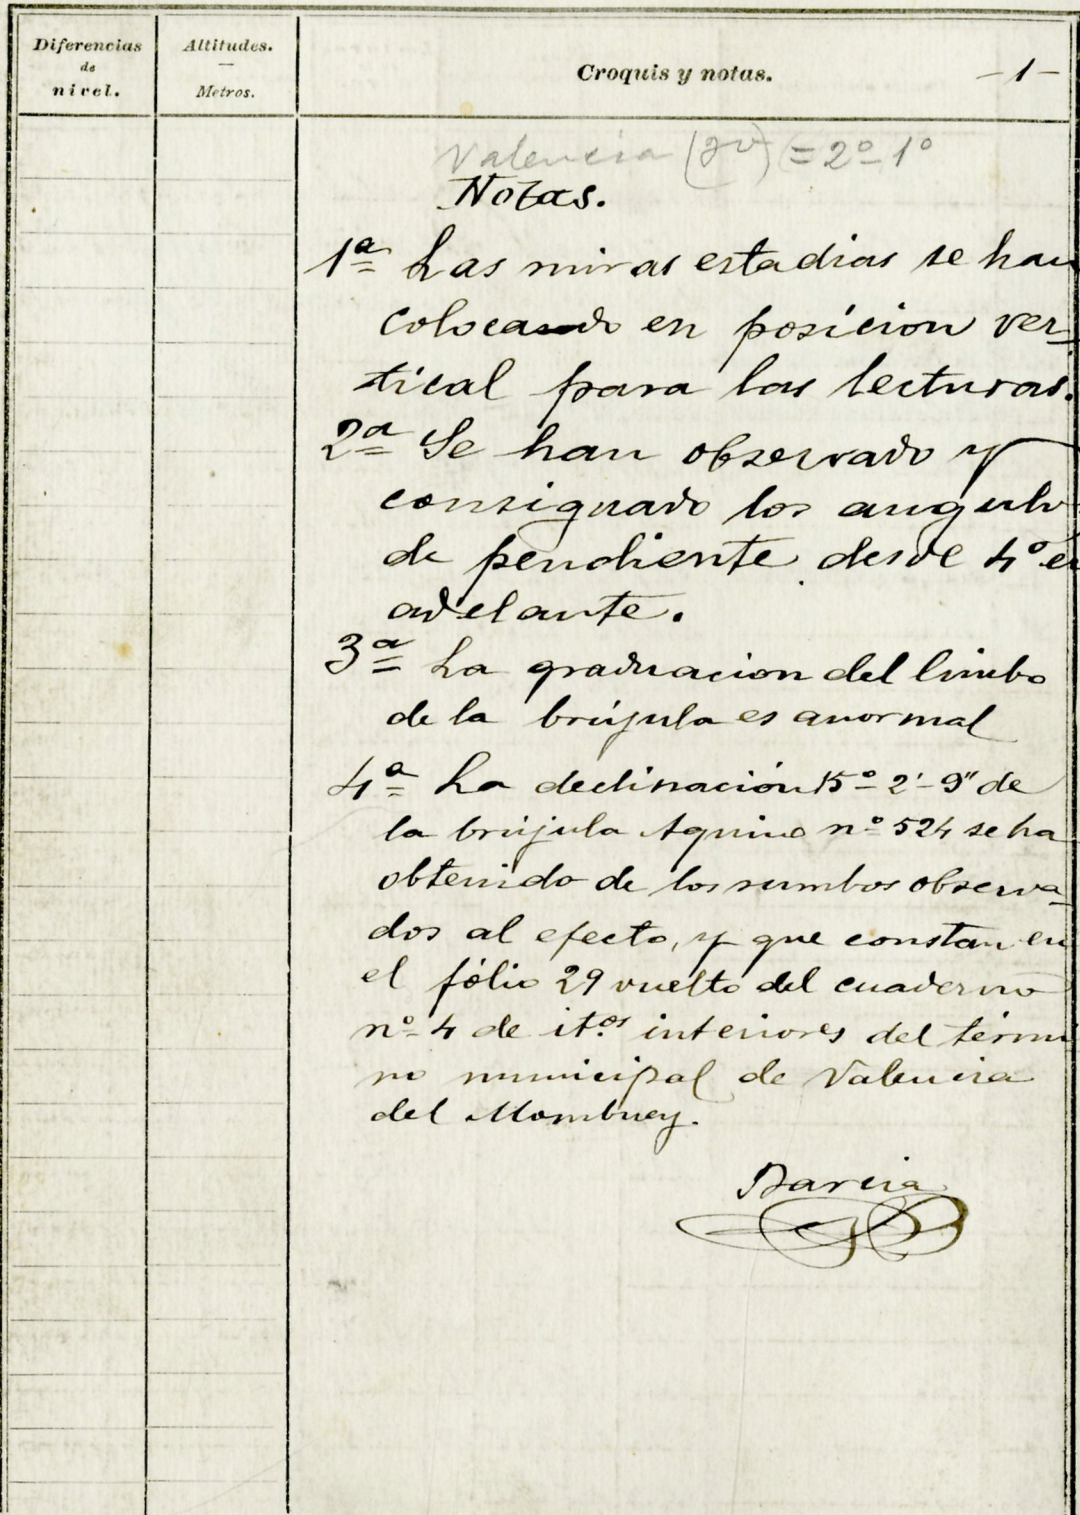 Diferencias
de
nivel.
Altitudes.
Metros.
Croquis y notas.
-1-
Valencia = 2º-1º
Notas.
1ª Las miras estadias se han
colocando en posicion ver-
tical para las lecturas.
2ª Se han observado y
consignado los angulo
de pendiente desde 4º en
adelante.
3ª La graduacion del limbo
de la brújula es anormal
4ª La declinación 15º-2'-9" de
la brújula Aquino nº 524 se ha
obtenido de los rumbos observa-
dos al efecto, y que constan en
el fólio 29 vuelto del cuaderno
nº 4 de it.os interiores del térmi
no municipal de Valencia
del Mombuey.
Barcia